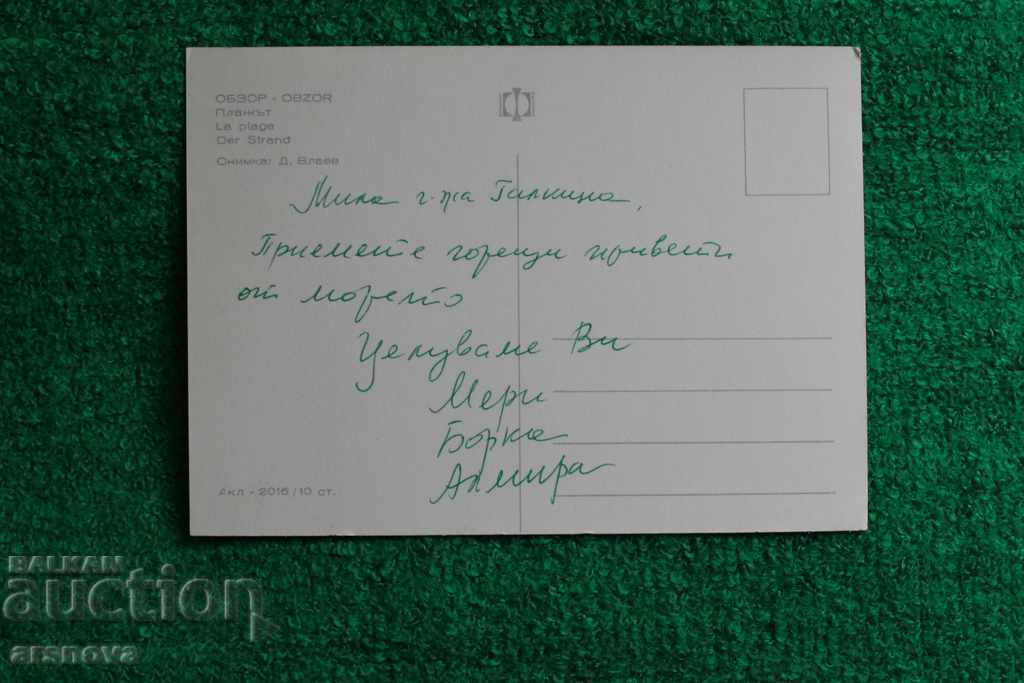 ОБЗОР - OBZOR
Плажът
La plage
Der Strand
Снимка: Д. Влаев
Мила г-жа Галкина,
Приемете горещи привети
от морето
Целуваме Ви
Мери
Борка
Алмира
Акл - 2016 / 10 ст.
BALKAN
auction
arsnova